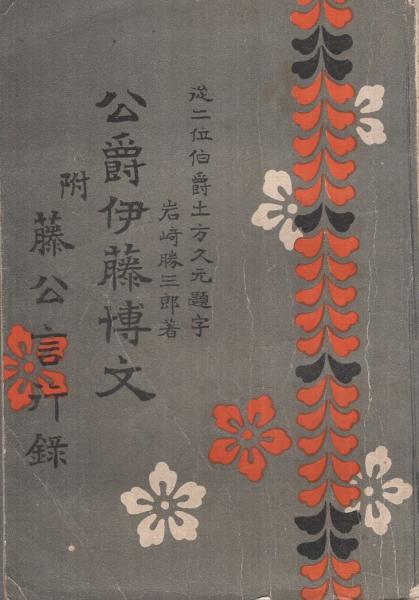 従二位伯爵土方久元題字
岩崎勝三郎著
公爵伊藤博文
附
藤公言行録